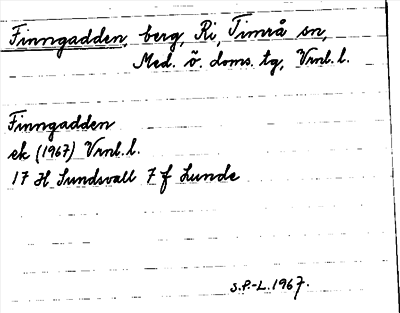 Finngadden, berg, Ri, Timrå sn,
Med. ö. doms. tg, Vrnl. l.
Finngadden
ek (1967) Vrnl. l.
17 H Sundsvall 7 f Lunde
S.P.-L. 1967.